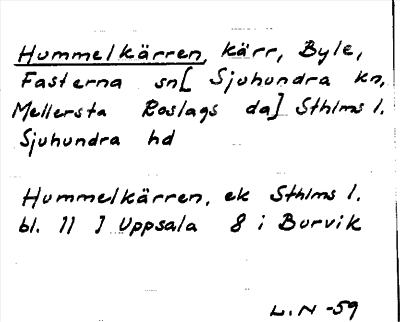 Hummelkärren, kärr, Byle,
Fasterna sn[ Sjuhundra kn,
Mellersta Roslags da] Sthlms l.
Sjuhundra hd
Hummelkärren, ek Sthlms l.
bl. 11 I Uppsala 8 i Burvik
L.N -59